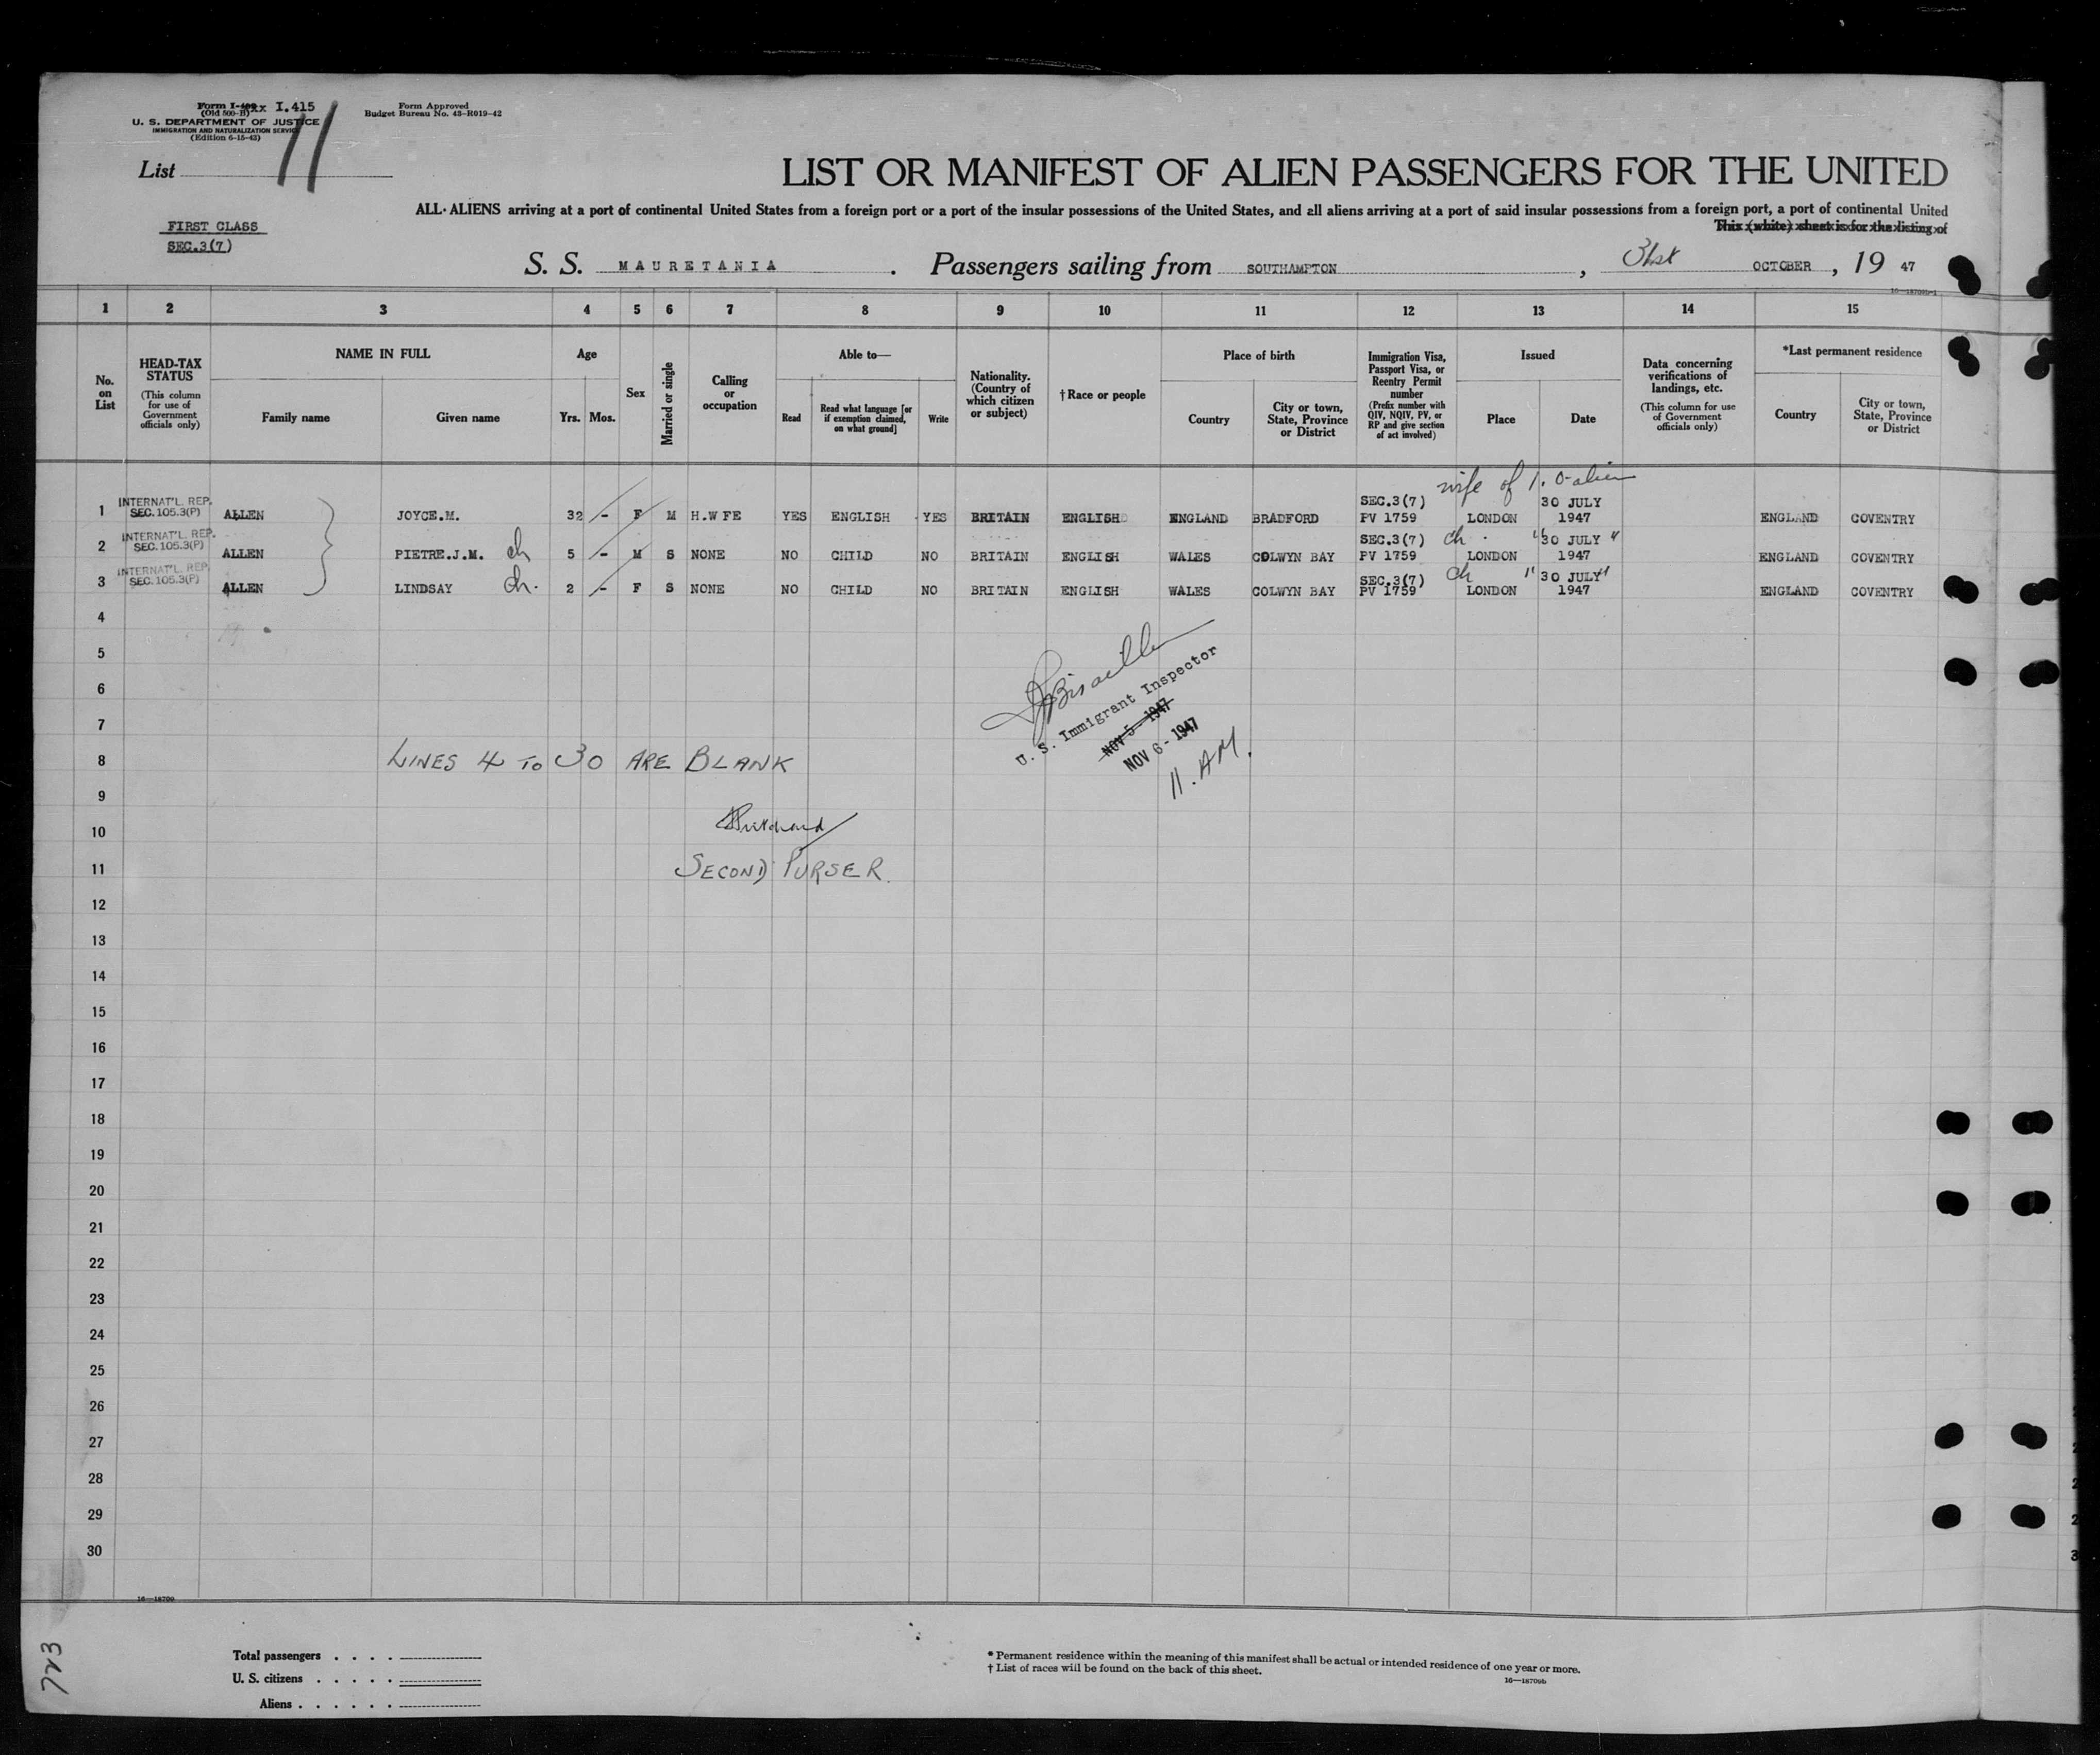 Form I-xx I.415
(Old 500-B)
U. S. DEPARTMENT OF JUSTICE
IMMIGRATION AND NATURALIZATION SERVICE
(Edition 6-15-43)
Form Approved
Budget Bureau No. 43-R019-42
List 11
LIST OR MANIFEST OF ALIEN PASSENGERS FOR THE UNITED
ALL ALIENS arriving at a port of continental United States from a foreign port or a port of the insular possessions of the United States, and all aliens arriving at a port of said insular possessions from a foreign port, a port of continental United
This (white) sheet is for the listing of
FIRST CLASS
SEC.3(7)
S. S. MAURETANIA . Passengers sailing from SOUTHAMPTON , 31st OCTOBER , 19 47
1 2 3 4 5 6 7 8 9 10 11 12 13 14 15
No. on List
HEAD-TAX STATUS
(This column for use of Government officials only)
NAME IN FULL
Family name
Given name
Age
Yrs. Mos.
Sex
Married or single
Calling or occupation
Able to—
Read
Read what language [or if exemption claimed, on what ground]
Write
Nationality. (Country of which citizen or subject)
†Race or people
Place of birth
Country
City or town, State, Province or District
Immigration Visa, Passport Visa, or Reentry Permit number
(Prefix number with QIV, NQIV, PV, or RP and give section of act involved)
Issued
Place
Date
Data concerning verifications of landings, etc.
(This column for use of Government officials only)
*Last permanent residence
Country
City or town, State, Province or District
wife of I. O-alien
1 INTERNAT'L. REP. SEC. 105.3(P) ALLEN JOYCE.M. 32 - F M H.WFE YES ENGLISH YES BRITAIN ENGLISH ENGLAND BRADFORD SEC.3(7) PV 1759 LONDON 30 JULY 1947 ENGLAND COVENTRY
2 INTERNAT'L. REP. SEC. 105.3(P) ALLEN PIETRE.J.M. ch 5 - M S NONE NO CHILD NO BRITAIN ENGLISH WALES COLWYN BAY SEC.3(7) PV 1759 ch " LONDON 30 JULY " 1947 ENGLAND COVENTRY
3 INTERNAT'L. REP. SEC. 105.3(P) ALLEN LINDSAY ch. 2 - F S NONE NO CHILD NO BRITAIN ENGLISH WALES COLWYN BAY SEC.3(7) PV 1759 ch " LONDON 30 JULY " 1947 ENGLAND COVENTRY
4
5
6
7
U. S. Immigrant Inspector
NOV 5 - 1947
NOV 6 - 1947
11. AM.
8 LINES 4 TO 30 ARE BLANK
9
10 Pritchard
11 SECOND PURSER.
12
13
14
15
16
17
18
19
20
21
22
23
24
25
26
27
28
29
30
16—18709
723
Total passengers . . . .
U. S. citizens . . . . .
Aliens . . . . . .
* Permanent residence within the meaning of this manifest shall be actual or intended residence of one year or more.
† List of races will be found on the back of this sheet.
16—18709b